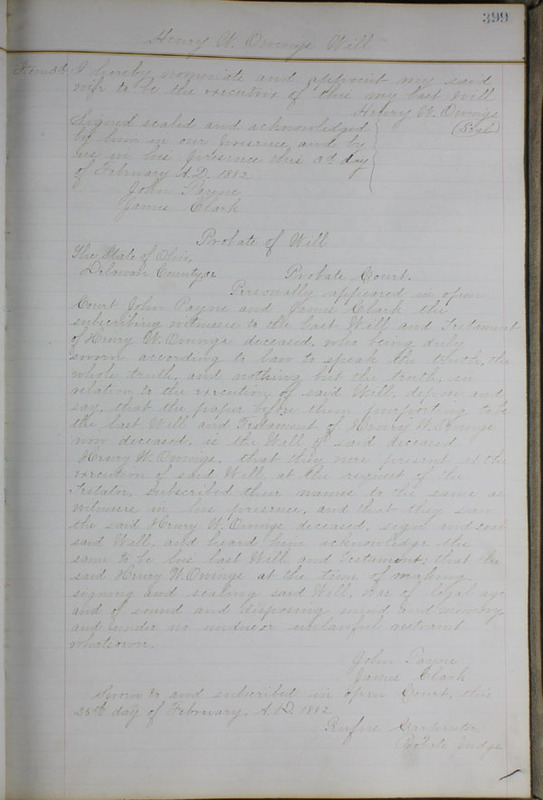 399
Henry W. Owings Will
Item 3d, I hereby nominate and appoint my said
wife to be the executrix of this my last will
Henry W. Owings
(Seal)
Signed sealed and acknowledged
by him in our presence, and by
us in his presence this 3d day
of February A.D. 1882
John Payne
James Clark
Probate of Will
The State of Ohio,
Delaware County, ss Probate Court.
Personally appeared in open
Court John Payne and James Clark the
subscribing witnesses to the last Will and Testament
of Henry W. Owings deceased, who being duly
sworn according to law to speak the truth, the
whole truth, and nothing but the truth, in
relation to the execution of said Will, depose and
say, that the paper before them purporting to be
the last Will and Testament of Henry W. Owings
now deceased, is the Will of said deceased
Henry W. Owings, that they were present at the
execution of said Will, at the request of the
Testator, Subscribed their names to the same as
witnesses in his presence, and that they saw
the said Henry W. Owings deceased, sign and seal
said Will, and heard him acknowledge the
same to be his last Will and Testament; that the
said Henry W. Owings at the time of making,
signing and sealing said Will, was of legal age
and of sound and disposing mind and memory
and under no undue or unlawful restraint
whatsoever.
John Payne
James Clark
Sworn to and subscribed in open Court, this
25th day of February, A.D. 1882
Rufus Carpenter
Probate Judge